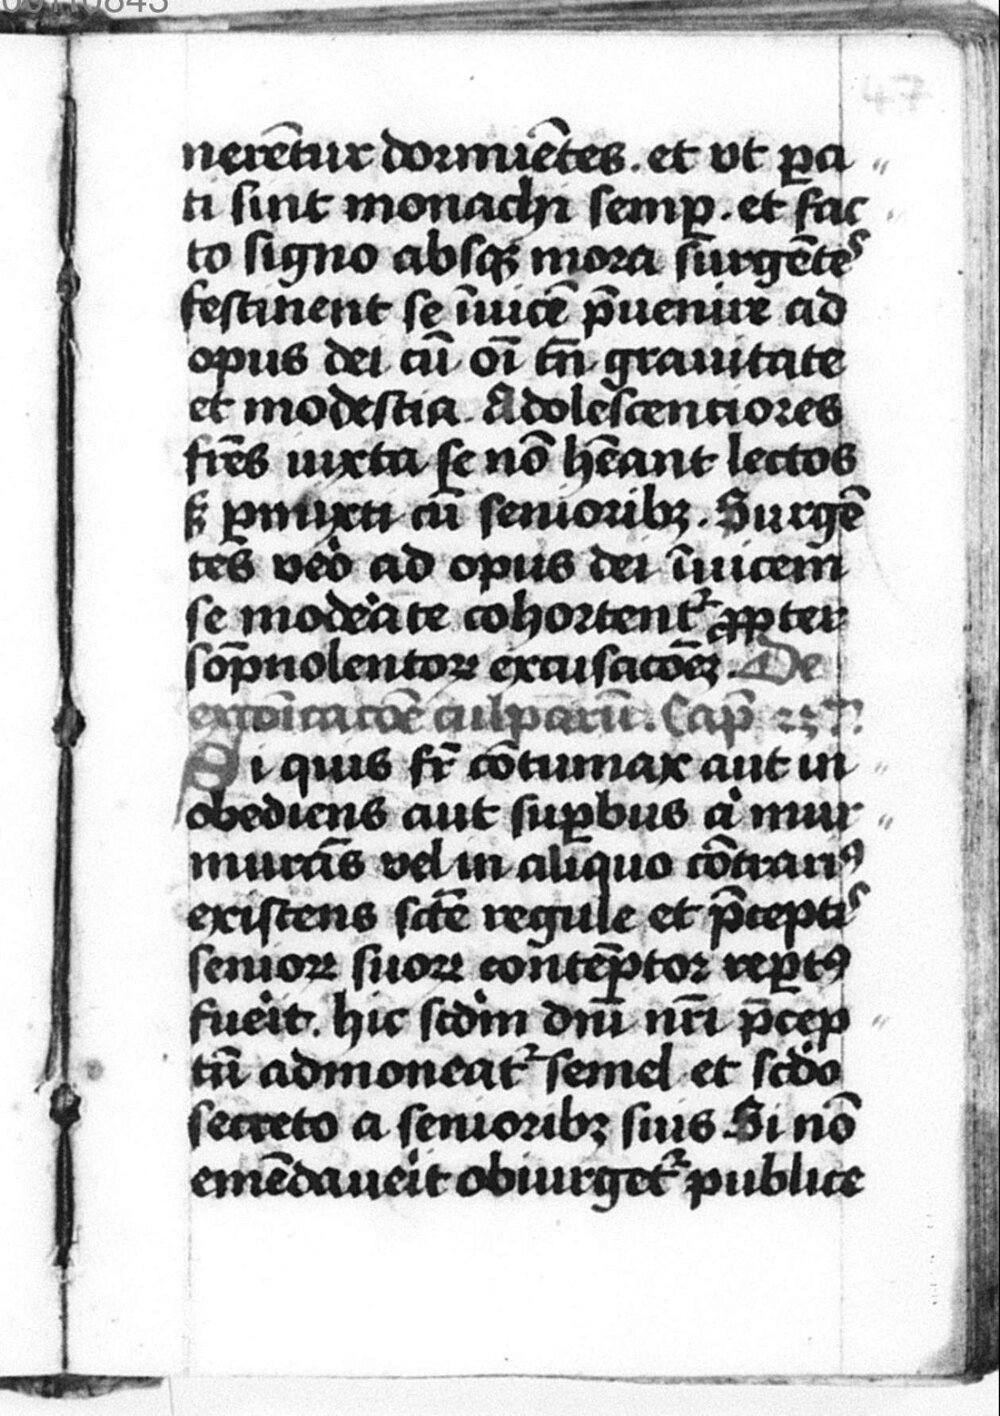 47
nerētur dormiētes. et vt ꝑa
ti sint monachi semꝑ. et fac
to signo absqꝫ mora surgētes
festinent se īuicē p̄uenire ad
opus dei cū oī tn̄ grauitate
et modestia. Adolescentiores
fr̄es iuxta se nō hēant lectos
sꝫ ꝑmixti cū senioribꝫ. Surgē
tes veo ad opus dei īuicem
se modeate cohortentᷣ ꝓpter
som̄pnolentoꝝ excusacōeꝫ. De
culparū. Cap̄
Si quis fr̄ cōtumax aut in
obediens aut suꝑbus a mur
murās vel in aliquo cōtrariꝰ
existens scē regule et p̄ceptis
senioꝝ suoꝝ contēptor reꝑtꝰ
fueit. hic scdm dn̄i nr̄i p̄cep
tū admoneatᷣ semel et scdo
secreto a senioribꝫ suis Si nō
emēdaueit obiurgetᷣ publice